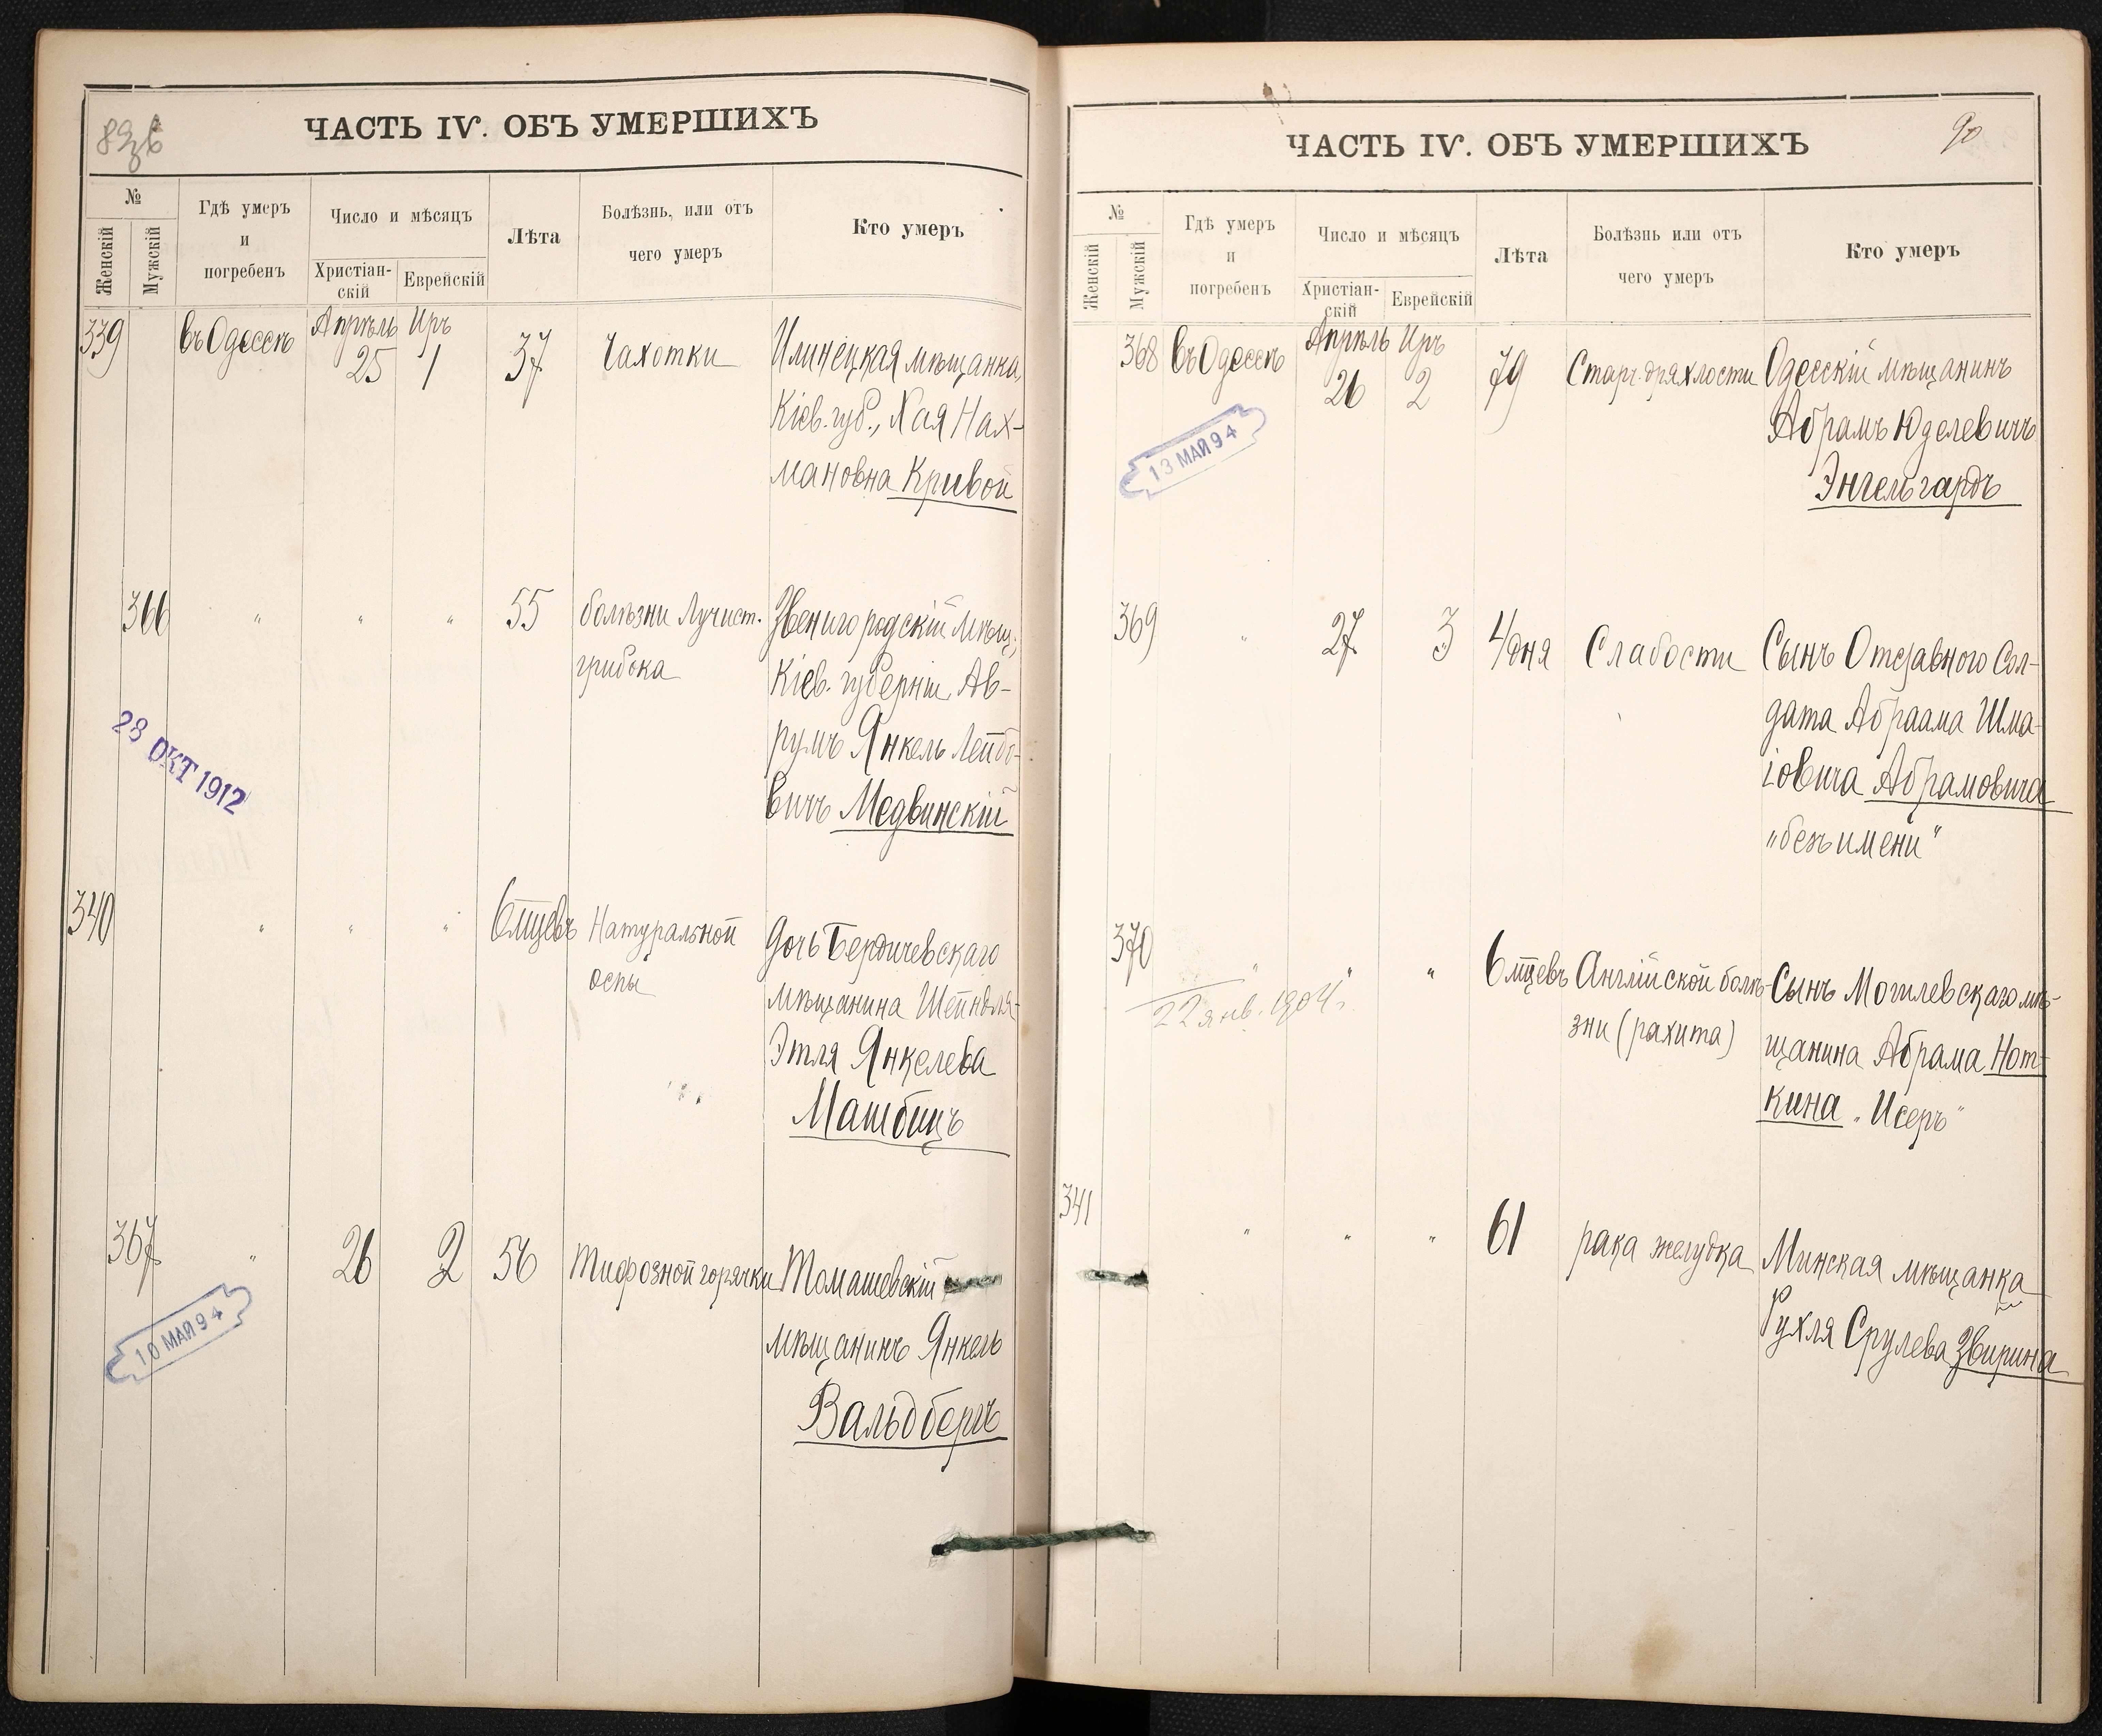 ЧАСТЬ IV. ОБЪ УМЕРШИХЪ
№
Женскій
Мужскій
Гдѣ умеръ
и
погребенъ
Число и мѣсяцъ
Христіан-
скій
Еврейскій
Лѣта
Болѣзнь, или отъ
чего умеръ
Кто умеръ
339 въ Одессѣ Апрѣль Иръ
25 1 37 Чахотки Илинецкая мѣщанка,
Кіев. губ., Хая Нах-
мановна Кривой
366 " " " 55 болѣзни Лучист. Звенигородскій мѣщ.,
грибока Кіев. губерніи, Ав-
румъ Янкель Лейбо-
вичъ Медвинскій
28 ОКТ 1912
340 " " " 6 мцевъ Натуральной дочь Бердичевскаго
оспы мѣщанина Шейндля-
Этля Янкелева
Машбицъ
367 " 26 2 56 Тифозной горячки Томашевскій
мѣщанинъ Янкель
Вальдбергъ
10 МАЙ 94
ЧАСТЬ IV. ОБЪ УМЕРШИХЪ
90
№
Женскій
Мужскій
Гдѣ умеръ
и
погребенъ
Число и мѣсяцъ
Христіан-
скій
Еврейскій
Лѣта
Болѣзнь или отъ
чего умеръ
Кто умеръ
368 въ Одессѣ Апрѣль Иръ
26 2 79 Старч. дряхлости Одесскій мѣщанинъ
Абрамъ Юделевичъ
Энгельгардъ
13 МАЙ 94
369 " 27 3 4 дня Слабости Сынъ Отставного Сол-
дата Абраама Шма-
іовича Абрамовича
„безъ имени“
370 " " " 6 мцевъ Англійской болѣ- Сынъ Могилевскаго мѣ-
зни (рахита) щанина Абрама Нот-
кина „Исеръ“
22 янв. 1904 г.
341 " " " 61 рака желудка Минская мѣщанка
Рухля Срулева Звирина